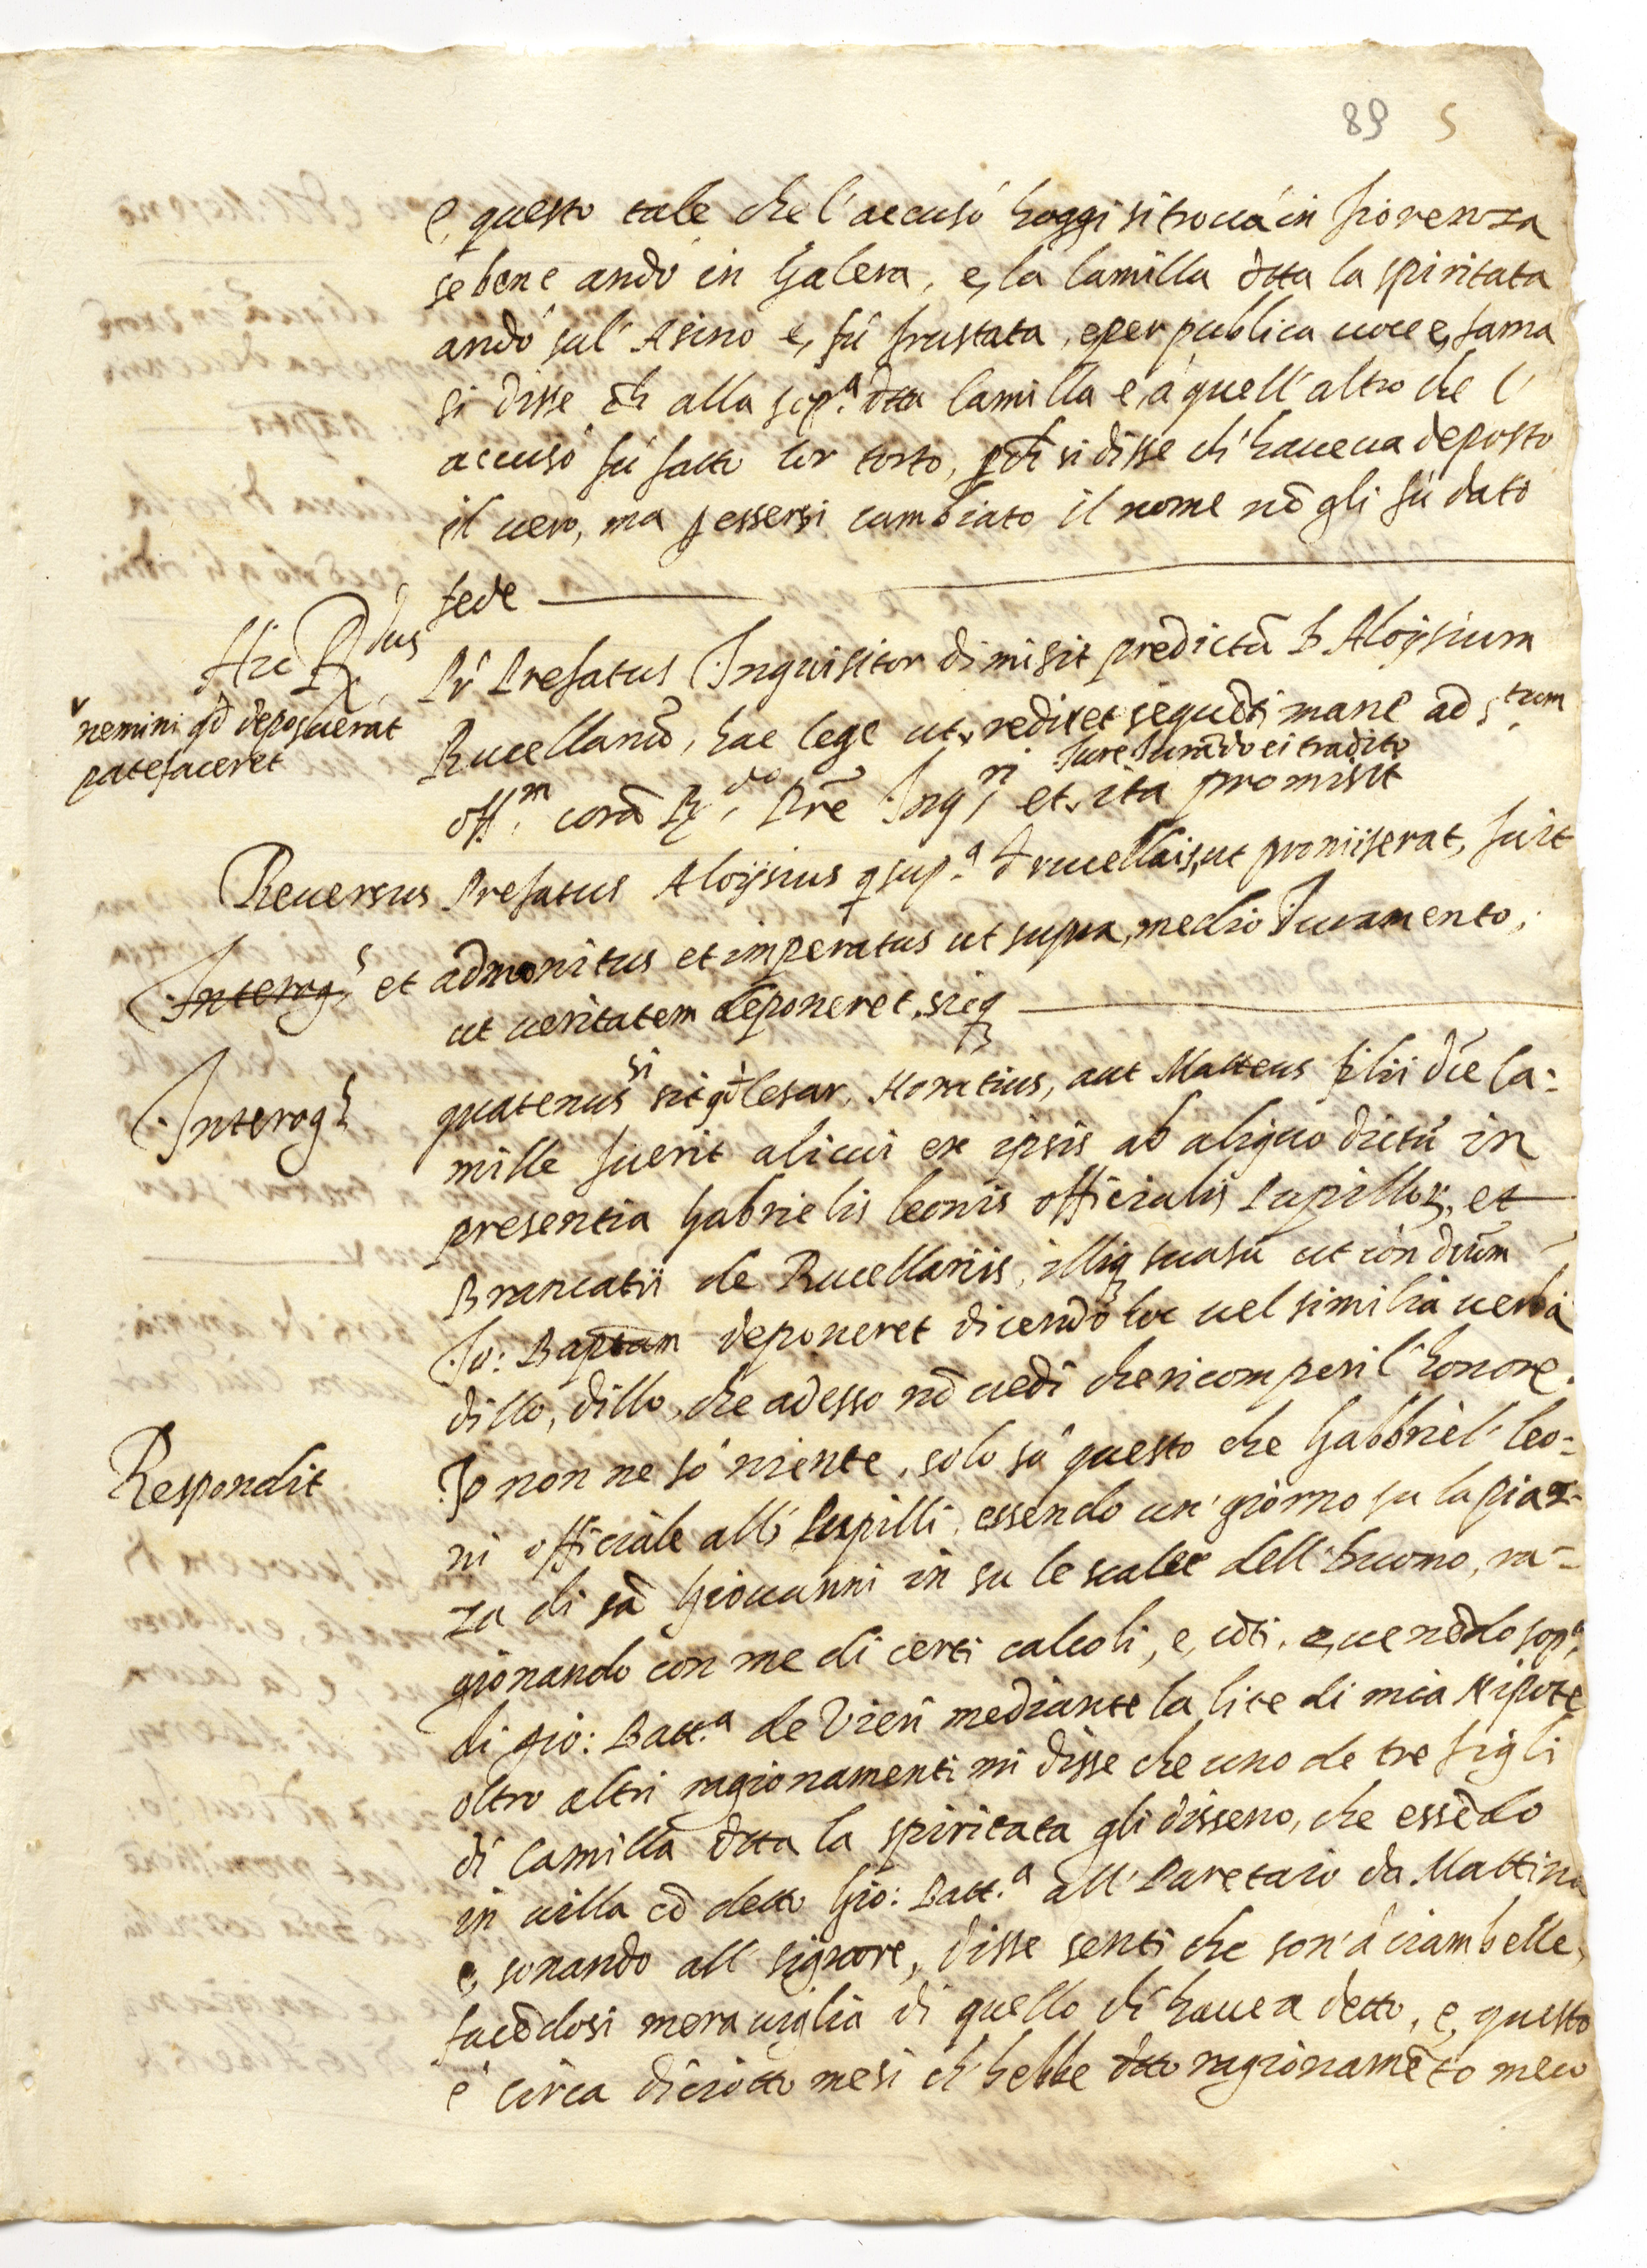 89 5
e, questo tale che l'accusò hoggi si trova in fiorenza
se bene andò in Galera, e, la Camilla dtta la spiritata
andò sul' Asino e, fù frustata, e per publica uoce e, fama
si disse ch alla sop.a dtta Camilla e, a quell'altro che l'
accusò fù fatto lor torto, pche si disse ch'haueua deposto
il uero, ma p essersi cambiato il nome nō gli fù dato
fede
Hic R.dus Pr Prefatus Inquisitor dimisit predictū D. Aloysium
Rucellariū, hac lege ut ᵥ rediret sequēti mane ad S.tum
ᵛ nemini qd deposuerat
patefaceret
off.m corā R.do Pre Inq.ri et ᵥ ita promisit
Jure Jurādo ei tradito
Reuersus Prefatus Aloysius q sup.a ut promiserat, fuit
Interog.s et admonitus et imperatus ut supra, medio Juramento,
ut ueritatem deponeret, sicq
Interog.s quatenus si Cesar, Horatius, aut Matteus filii dce Ca=
mille fuerit alicui ex ipsis ab aliquo dictū in
presentia Gabrielis Leonis officialis Pupillor, et
Brancatii de Rucellariis, illiq suasū ut con dum
Jo: Baptam deponeret dicendo hec uel similia uerba
dillo, dillo, che adesso nō uedi che ricomperi l'honore.
Respondit Io non ne sò niente, solo sò questo che Gabbriel' Leo=
ni officiale alli Pupilli, essendo un' giorno su la piaz=
za di sā Giouanni in su le scalee dell Duomo, ra=
gionando con me di certi calcoli, e, cōti, e, uenēdo sop.a
di Gio: Batt.a de Vieri mediante la lite di mia Nipote
oltro altri ragionamenti mi disse che uno de tre figli
di Camilla dtta la spiritata gli disseno, che essēdo
in uilla cō detto Gio: Batt.a all' Paretaio da Mattina
e, sonando all signore, disse senti che son' a ciambelle,
facēdosi merauiglia di quello ch'hauea detto, e, questo
e' circa diciotto mesi ch'hebbe dtto ragionamēto meco